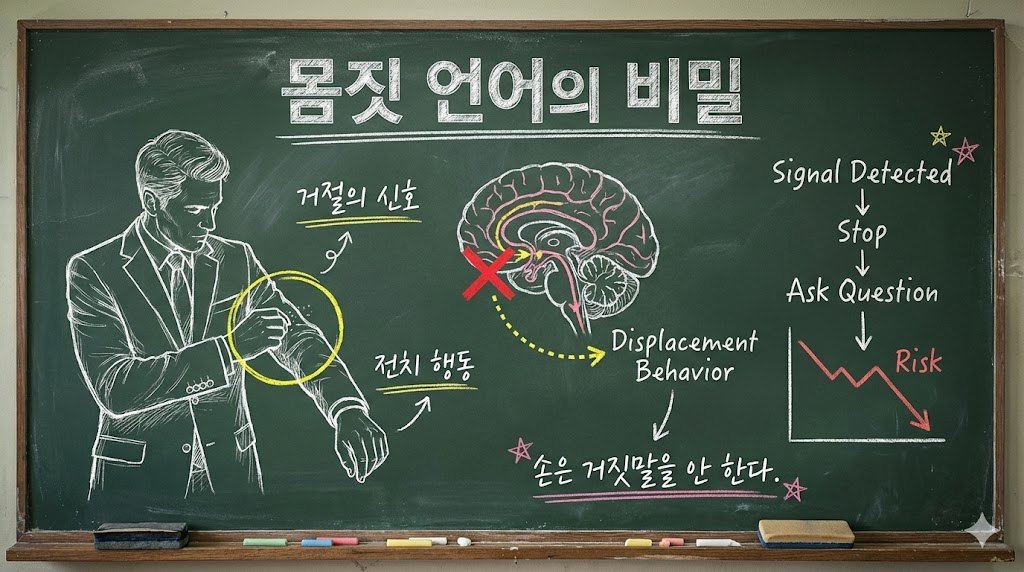 몸짓 언어의 비밀
거절의 신호
전치 행동
Displacement
Behavior
손은 거짓말을 안 한다.
Signal Detected
Stop
Ask Question
Risk